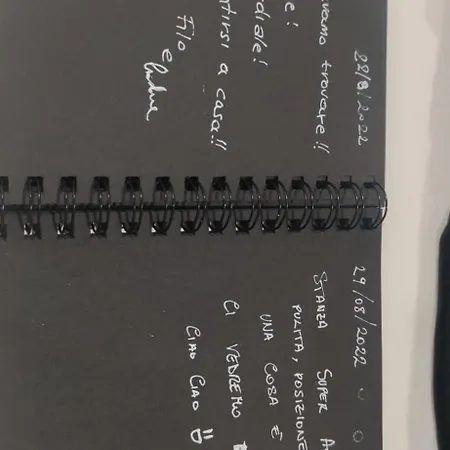 22/8/2022
avamo trovare!!
e!
diale!
tirsi a casa!!
Filo
e
29/08/2022
STANZA SUPER A
PULITA, POSIZIONE
UNA COSA È
CI VEDREMO
CIAO CIAO